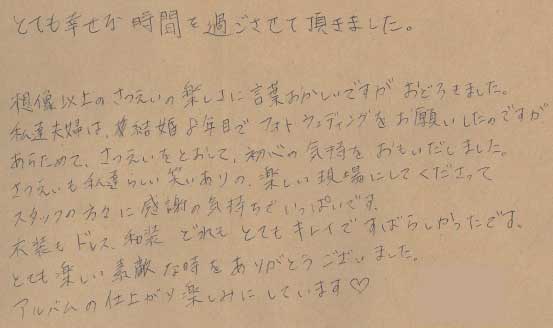 とても幸せな時間を過ごさせて頂きました。
想像以上のさつえいの楽しさに言葉おかしいですがおどろきました。
私達夫婦は、結婚8年目でフォトウェディングをお願いしたのですが
あらためて、さつえいをとおして、初心の気持をおもいだしました。
さつえいも私達らしい笑いありの、楽しい現場にしてくださって
スタッフの方々に感謝の気持ちでいっぱいです。
衣装もドレス、和装どれもとてもキレイですばらしかったです。
とても楽しい素敵な時をありがとうございました。
アルバムの仕上がり楽しみにしています♡